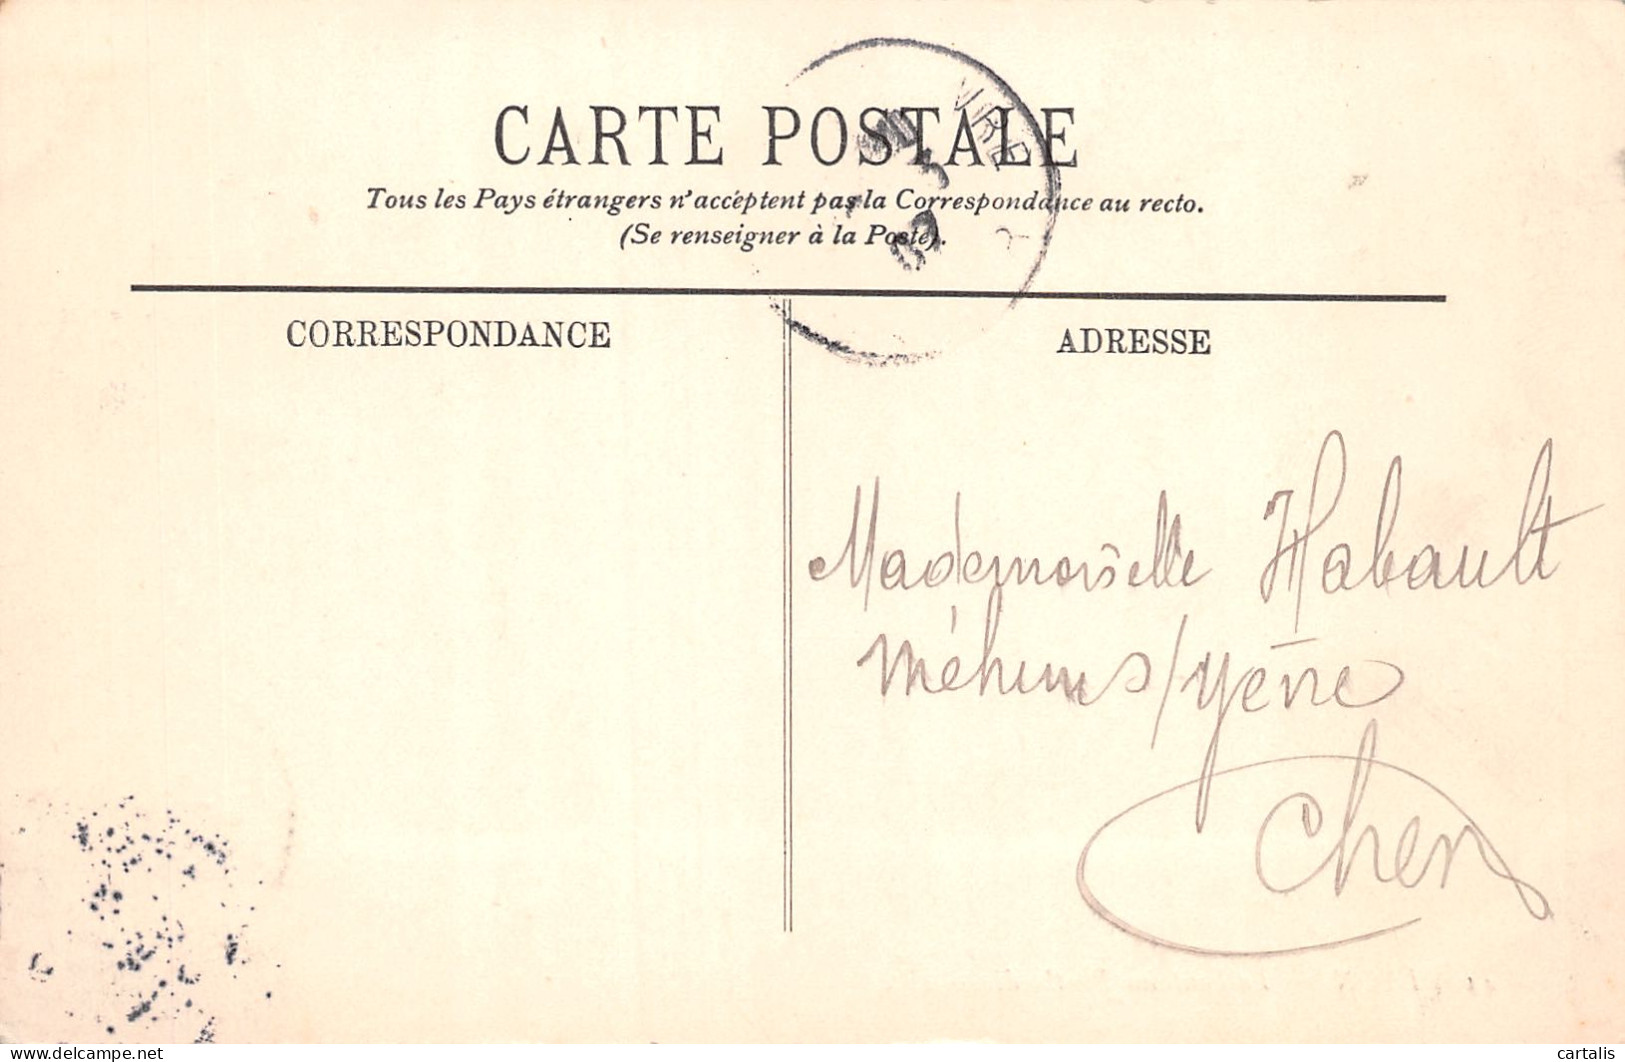 CARTE POSTALE
Tous les Pays étrangers n'accéptent pas la Correspondance au recto.
(Se renseigner à la Poste).
VIRE
5
09
CORRESPONDANCE
ADRESSE
Mademoiselle Habault
Méhuns s/ Yèvre
Cher
delcampe.net
cartalis